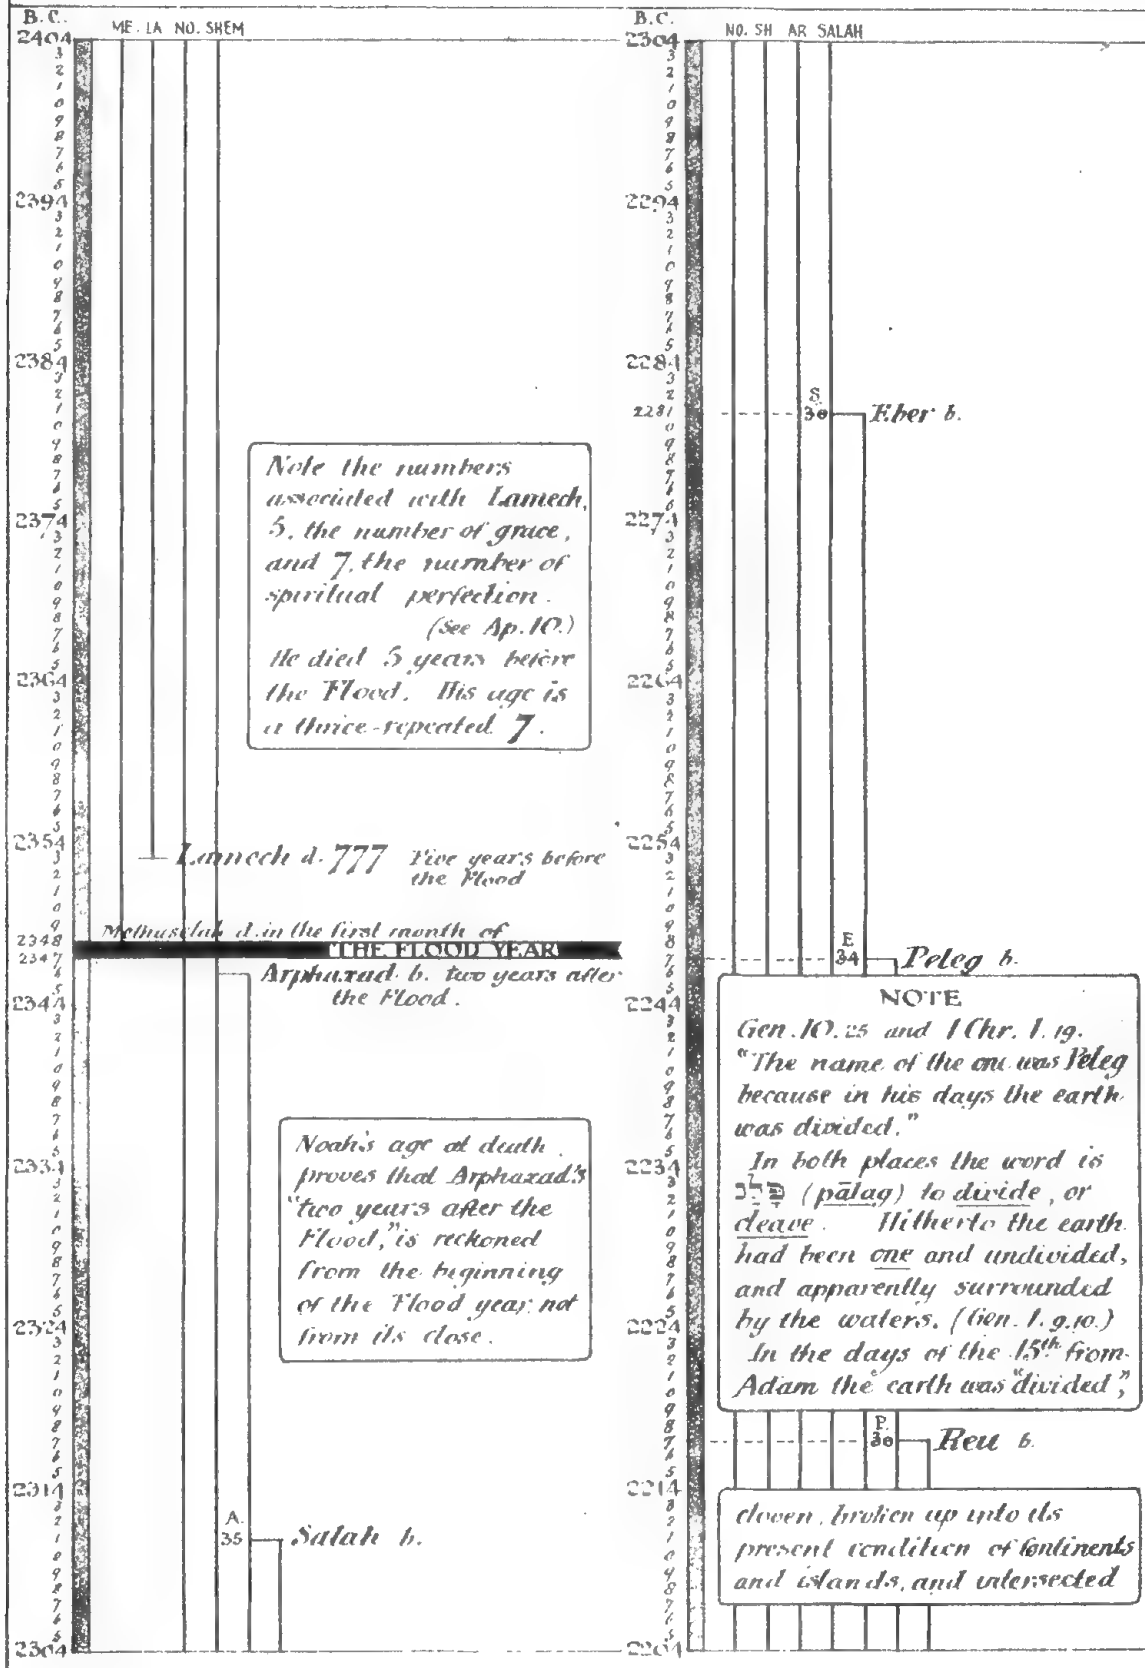 B.C.
ME. LA NO. SHEM
2404
3
2
1
0
9
8
7
6
5
2394
3
2
1
0
9
8
7
6
5
2384
3
2
1
0
9
8
7
6
5
2374
3
2
1
0
9
8
7
6
5
2364
3
2
1
0
9
8
7
6
5
2354
3
2
1
0
9
2348
2347
6
5
2344
3
2
1
0
9
8
7
6
5
2334
3
2
1
0
9
8
7
6
5
2324
3
2
1
0
9
8
7
6
5
2314
3
2
1
0
9
8
7
6
5
2304
Note the numbers
associated with Lamech,
5, the number of grace,
and 7, the number of
spiritual perfection.
(See Ap. 10.)
He died 5 years before
the Flood. His age is
a thrice-repeated 7.
Lamech d. 777 Five years before
the Flood
Methuselah d. in the first month of
THE FLOOD YEAR
Arphaxad b. two years after
the Flood.
Noah's age at death
proves that Arphaxad's
"two years after the
Flood," is reckoned
from the beginning
of the Flood year, not
from its close.
A.
35
Salah b.
B.C.
NO. SH AR SALAH
2304
3
2
1
0
9
8
7
6
5
2294
3
2
1
0
9
8
7
6
5
2284
3
2
2281
0
9
8
7
6
5
2274
3
2
1
0
9
8
7
6
5
2264
3
2
1
0
9
8
7
6
5
2254
3
2
1
0
9
8
7
6
5
2244
3
2
1
0
9
8
7
6
5
2234
3
2
1
0
9
8
7
6
5
2224
3
2
1
0
9
8
7
6
5
2214
3
2
1
0
9
8
7
6
5
2204
S.
30
Eber b.
E
34
Peleg b.
NOTE
Gen. 10. 25 and 1 Chr. 1. 19.
"The name of the one was Peleg
because in his days the earth
was divided."
In both places the word is
פָּלַג (pālag) to divide, or
cleave. Hitherto the earth
had been one and undivided,
and apparently surrounded
by the waters. (Gen. 1. 9. 10.)
In the days of the 15th from
Adam the earth was "divided",
P.
30
Reu b.
cloven, broken up into its
present condition of Continents
and islands, and intersected